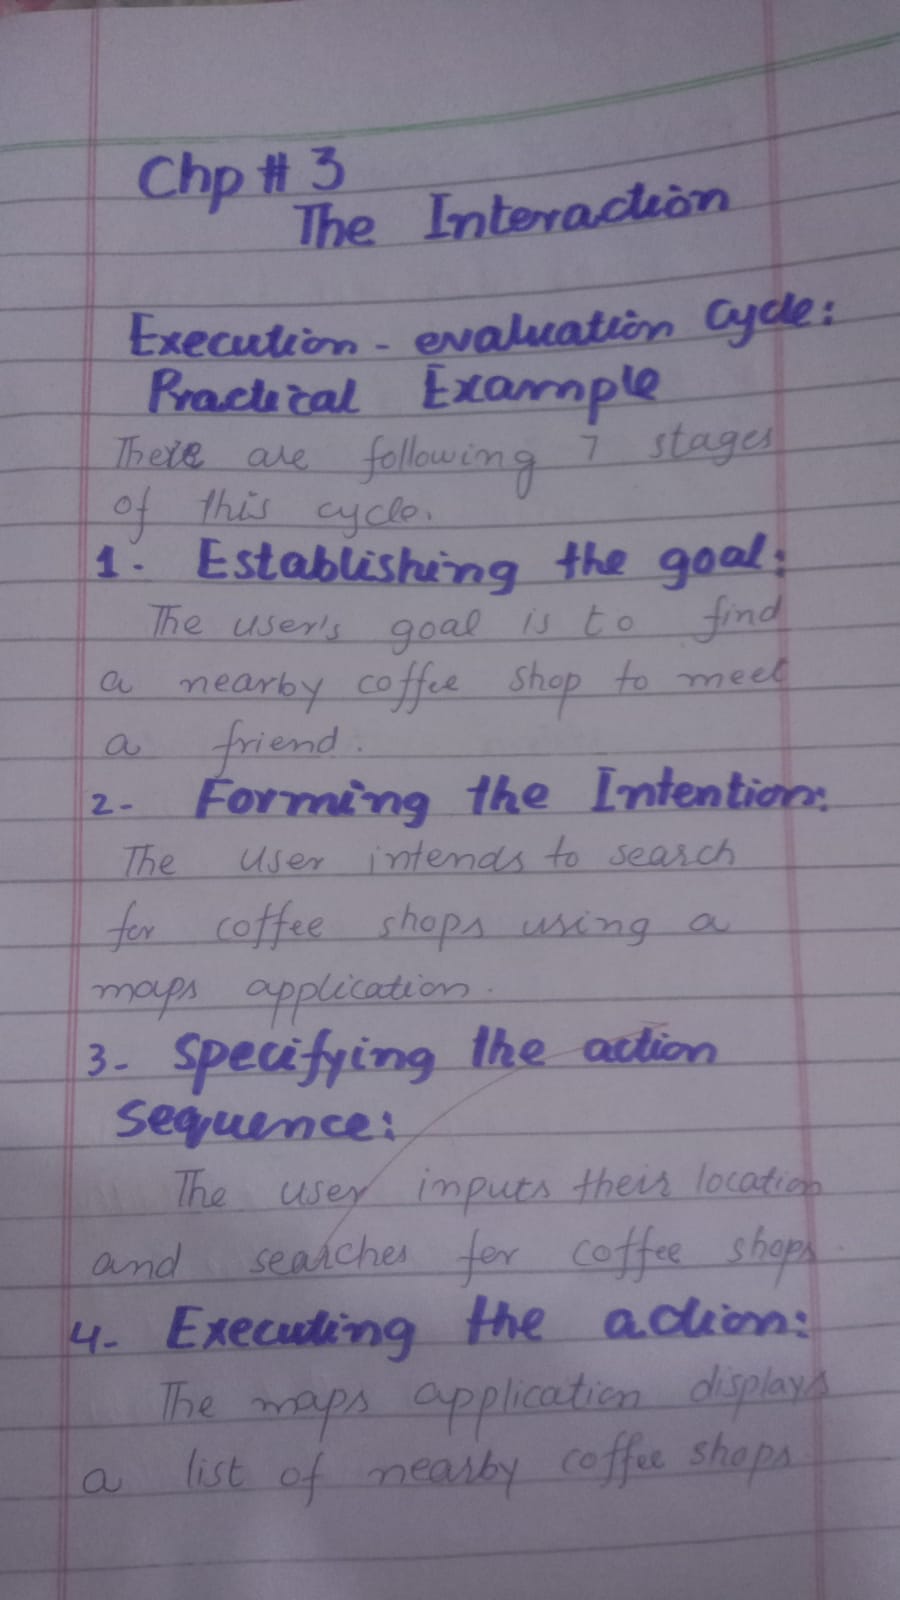 Chp # 3
The Interaction
Execution - evaluation Cycle:
Practical Example
There are following 7 stages
of this cycle.
1. Establishing the goal:
The user's goal is to find
a nearby coffee shop to meet
a friend.
2- Forming the Intention:
The user intends to search
for coffee shops using a
maps application.
3- Specifying the action
sequence:
The user inputs their location
and searches for coffee shops.
4- Executing the action:
The maps application displays
a list of nearby coffee shops